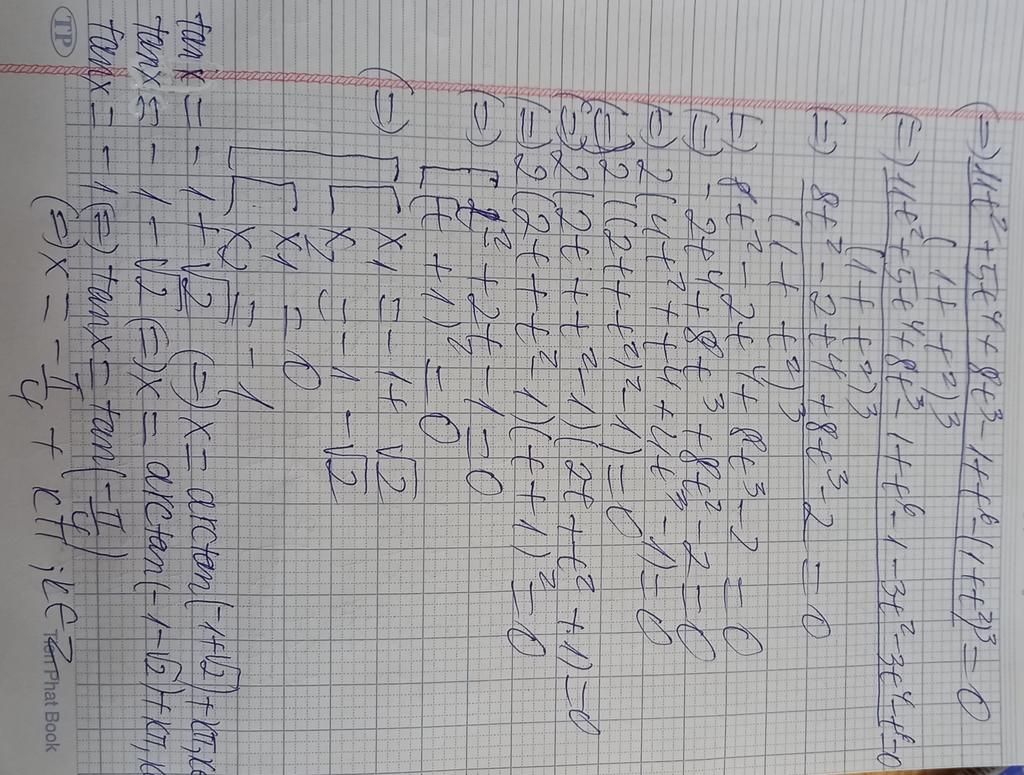 (=) 4t² + 5t⁴ + 8t³ - 1 + t⁶ - (1 + t²)³ = 0
(1 + t²)³
(=) 4t² + 5t⁴ + 8t³ - 1 + t⁶ - 1 - 3t² - 3t⁴ - t⁶ = 0
(1 + t²)3
(=) 8t² - 2t⁴ + 8t³ - 2 = 0
(1 + t²)3
(=) 8t² - 2t⁴ + 8t³ - 2 = 0
(=) - 2t⁴ + 8t³ + 8t² - 2 = 0
(=) 2 (4t² + t⁴ + 4t³ - 1) = 0
(=) 2 ((2t + t²)² - 1) = 0
(=) 2 (2t + t² - 1)(2t + t² + 1) = 0
(=) 2 (2t + t² - 1)(t + 1)² = 0
(=) [ t² + 2t - 1 = 0
(t + 1)² = 0
(=) x1 = - 1 + √2
x2 = - 1 - √2
x1 = 0
x2 = - 1
tan x = - 1 + √2 (=) x = arctan(-1+√2) + kπ, k∈
tan x = - 1 - √2 (=) x = arctan(-1-√2) + kπ, k
tan x = - 1 (=) tan x = tan(-π/4)
(=) x = - π/4 + kπ ; k ∈ Z
TP
Tiến Phát Book